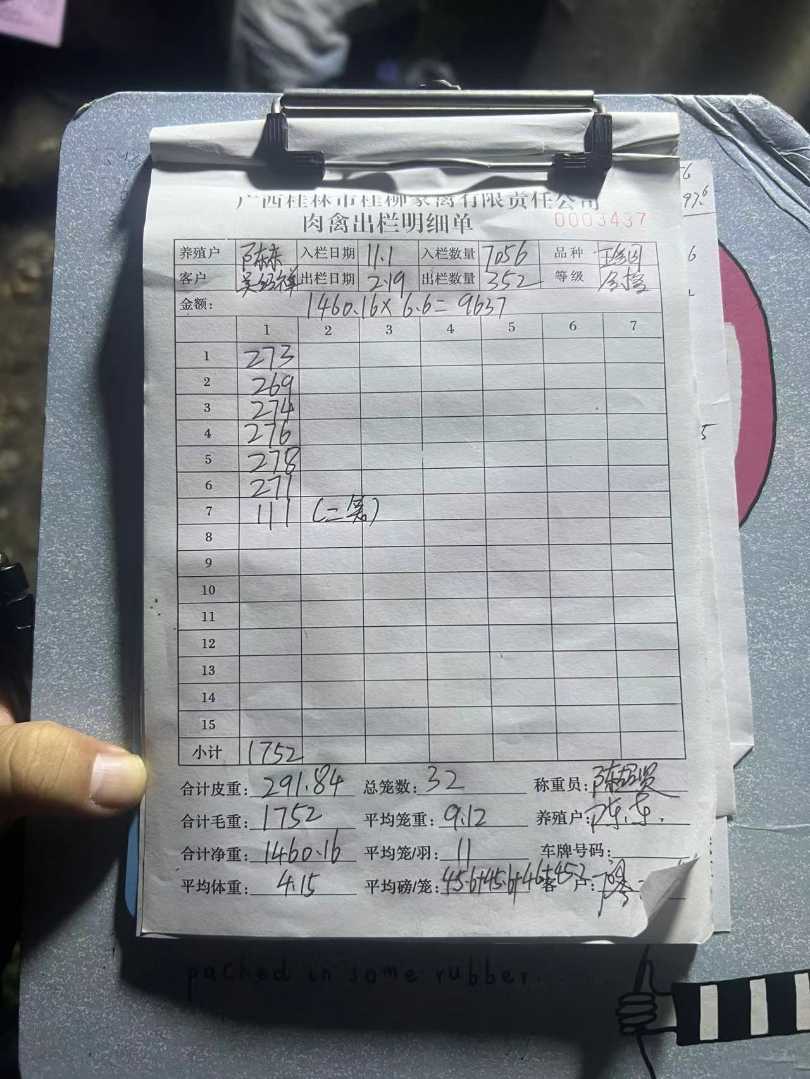 广西桂林市桂柳家禽有限责任公司
肉禽出栏明细单 0003437
养殖户 陈东 入栏日期 11.1 入栏数量 7056 品种
客户 出栏日期 2.19 出栏数量 352 等级
金额: 1460.16×6.6=9637
1 2 3 4 5 6 7
1 273
2 269
3 274
4 276
5 278
6 271
7 111 (二笼)
8
9
10
11
12
13
14
15
小计 1752
合计皮重: 291.84 总笼数: 32 称重员: 陈绍贤
合计毛重: 1752 平均笼重: 9.12 养殖户: 陈东.
合计净重: 1460.16 平均笼/羽: 11 车牌号码:
平均体重: 4.15 平均磅/笼: 45.6+45.6+46+45.2 客户:
packed in some rubber.